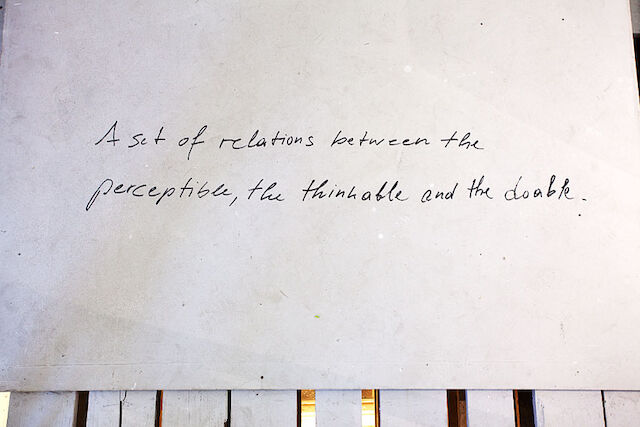 A set of relations between the
perceptible, the thinkable and the doable.